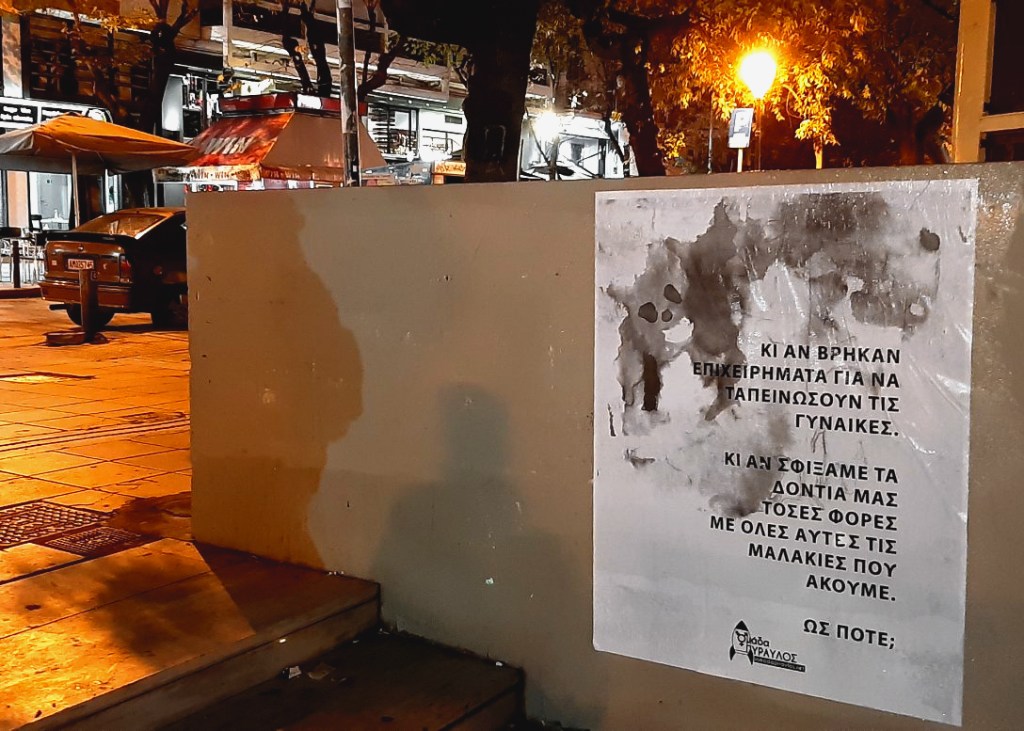 WIN
WIN · WIN
ΚΙ ΑΝ ΒΡΗΚΑΝ
ΕΠΙΧΕΙΡΗΜΑΤΑ ΓΙΑ ΝΑ
ΤΑΠΕΙΝΩΣΟΥΝ ΤΙΣ
ΓΥΝΑΙΚΕΣ.
ΚΙ ΑΝ ΣΦΙΞΑΜΕ ΤΑ
ΔΟΝΤΙΑ ΜΑΣ
ΤΟΣΕΣ ΦΟΡΕΣ
ΜΕ ΟΛΕΣ ΑΥΤΕΣ ΤΙΣ
ΜΑΛΑΚΙΕΣ ΠΟΥ
ΑΚΟΥΜΕ.
ΩΣ ΠΟΤΕ;
ομάδα
ΠΥΡΑΥΛΟΣ